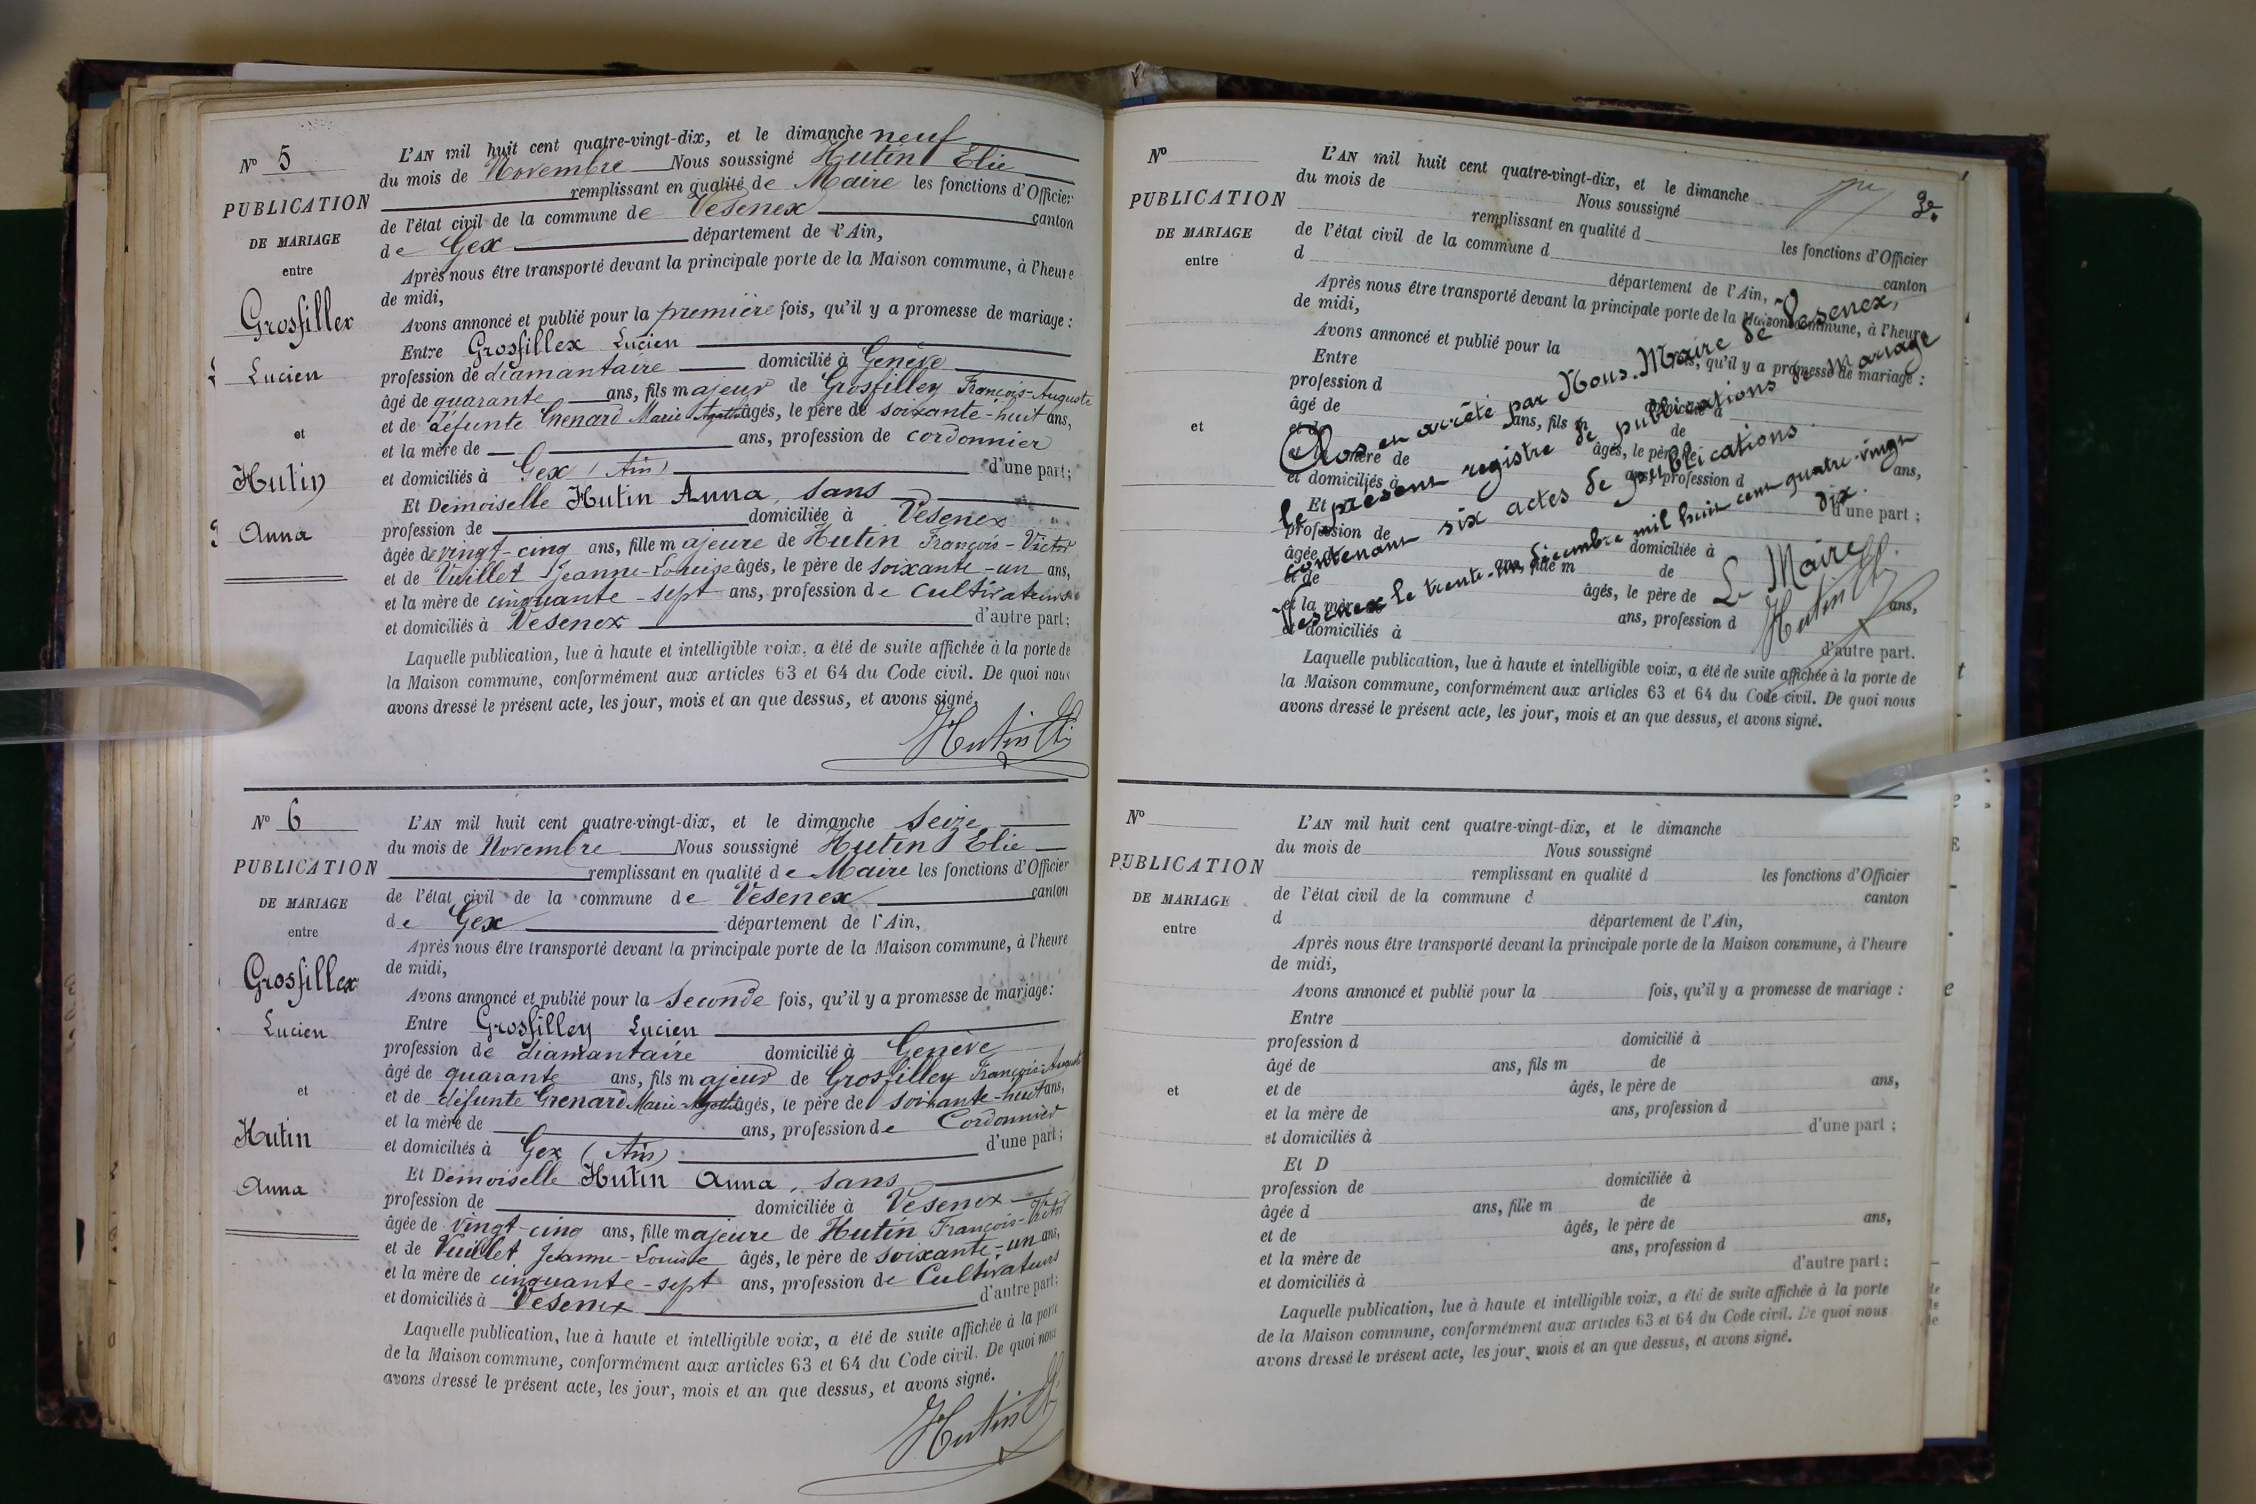 N° 5
PUBLICATION
DE MARIAGE
entre
Grosfillex
Lucien
et
Hutin
Anna
L'AN mil huit cent quatre-vingt-dix, et le dimanche neuf
du mois de Novembre Nous soussigné Hutin Elie
remplissant en qualité de Maire les fonctions d'Officier
de l'état civil de la commune de Vesenex canton
de Gex département de l'Ain,
Après nous être transporté devant la principale porte de la Maison commune, à l'heure
de midi,
Avons annoncé et publié pour la première fois, qu'il y a promesse de mariage :
Entre Grosfillex Lucien
profession de diamantaire domicilié à Genève
âgé de quarante ans, fils majeur de Grosfilley François-Auguste
et de défunte Grenard Marie-Agathe âgés, le père de soixante-huit ans,
et la mère de ans, profession de cordonnier
et domiciliés à Gex (Ain) d'une part;
Et Demoiselle Hutin Anna, sans
profession de domiciliée à Vesenex
âgée de vingt-cinq ans, fille majeure de Hutin François-Victor
et de Vuillet Jeanne-Louise âgés, le père de soixante-un ans,
et la mère de cinquante-sept ans, profession de cultivateurs
et domiciliés à Vesenex d'autre part;
Laquelle publication, lue à haute et intelligible voix, a été de suite affichée à la porte de
la Maison commune, conformément aux articles 63 et 64 du Code civil. De quoi nous
avons dressé le présent acte, les jour, mois et an que dessus, et avons signé.
Hutin El.
N° 6
PUBLICATION
DE MARIAGE
entre
Grosfillex
Lucien
et
Hutin
Anna
L'AN mil huit cent quatre-vingt-dix, et le dimanche seize
du mois de Novembre Nous soussigné Hutin Elie
remplissant en qualité de Maire les fonctions d'Officier
de l'état civil de la commune de Vesenex canton
de Gex département de l'Ain,
Après nous être transporté devant la principale porte de la Maison commune, à l'heure
de midi,
Avons annoncé et publié pour la seconde fois, qu'il y a promesse de mariage :
Entre Grosfilley Lucien
profession de diamantaire domicilié à Genève
âgé de quarante ans, fils majeur de Grosfilley François-Auguste
et de défunte Grenard Marie-Agathe âgés, le père de soixante-huit ans,
et la mère de ans, profession de Cordonnier
et domiciliés à Gex (Ain) d'une part;
Et Demoiselle Hutin Anna, sans
profession de domiciliée à Vesenex
âgée de vingt-cinq ans, fille majeure de Hutin François-Victor
et de Vuillet Jeanne-Louise âgés, le père de soixante-un ans,
et la mère de cinquante-sept ans, profession de Cultivateurs
et domiciliés à Vesenex d'autre part;
Laquelle publication, lue à haute et intelligible voix, a été de suite affichée à la porte
de la Maison commune, conformément aux articles 63 et 64 du Code civil. De quoi nous
avons dressé le présent acte, les jour, mois et an que dessus, et avons signé.
Hutin El.
N°
PUBLICATION
DE MARIAGE
entre
et
L'AN mil huit cent quatre-vingt-dix, et le dimanche
du mois de Nous soussigné
remplissant en qualité d les fonctions d'Officier
de l'état civil de la commune d canton
d département de l'Ain,
Après nous être transporté devant la principale porte de la Maison commune, à l'heure
de midi,
Avons annoncé et publié pour la fois, qu'il y a promesse de mariage :
Entre
profession d domicilié à
âgé de ans, fils m de
et de âgés, le père de ans,
et la mère de ans, profession d
et domiciliés à d'une part ;
Et
profession de domiciliée à
âgée d ans, fille m de
et de âgés, le père de ans,
et la mère de ans, profession d
et domiciliés à d'autre part.
Laquelle publication, lue à haute et intelligible voix, a été de suite affichée à la porte de
la Maison commune, conformément aux articles 63 et 64 du Code civil. De quoi nous
avons dressé le présent acte, les jour, mois et an que dessus, et avons signé.
Clos en arrêté par Nous. Maire de Vesenex,
le présent registre de publications de mariage
contenant six actes de publications.
Vesenex le trente-un décembre mil huit cent quatre-vingt
dix.
Le Maire
Hutin El.
N°
PUBLICATION
DE MARIAGE
entre
et
L'AN mil huit cent quatre-vingt-dix, et le dimanche
du mois de Nous soussigné
remplissant en qualité d les fonctions d'Officier
de l'état civil de la commune d canton
d département de l'Ain,
Après nous être transporté devant la principale porte de la Maison commune, à l'heure
de midi,
Avons annoncé et publié pour la fois, qu'il y a promesse de mariage :
Entre
profession d domicilié à
âgé de ans, fils m de
et de âgés, le père de ans,
et la mère de ans, profession d
et domiciliés à d'une part ;
Et D
profession de domiciliée à
âgée d ans, fille m de
et de âgés, le père de ans,
et la mère de ans, profession d
et domiciliés à d'autre part ;
Laquelle publication, lue à haute et intelligible voix, a été de suite affichée à la porte
de la Maison commune, conformément aux articles 63 et 64 du Code civil. De quoi nous
avons dressé le présent acte, les jour, mois et an que dessus, et avons signé.